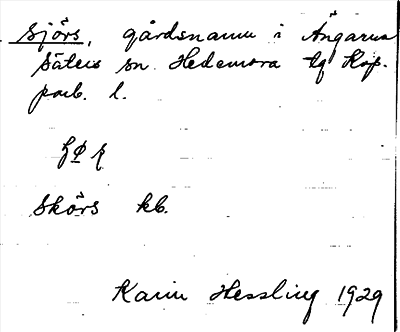 Sjörs, gårdsnamn i Ängarna
Säters sn Hedemora tg Kop-
parb. l.
Skörs kb.
Karin Hessling 1929